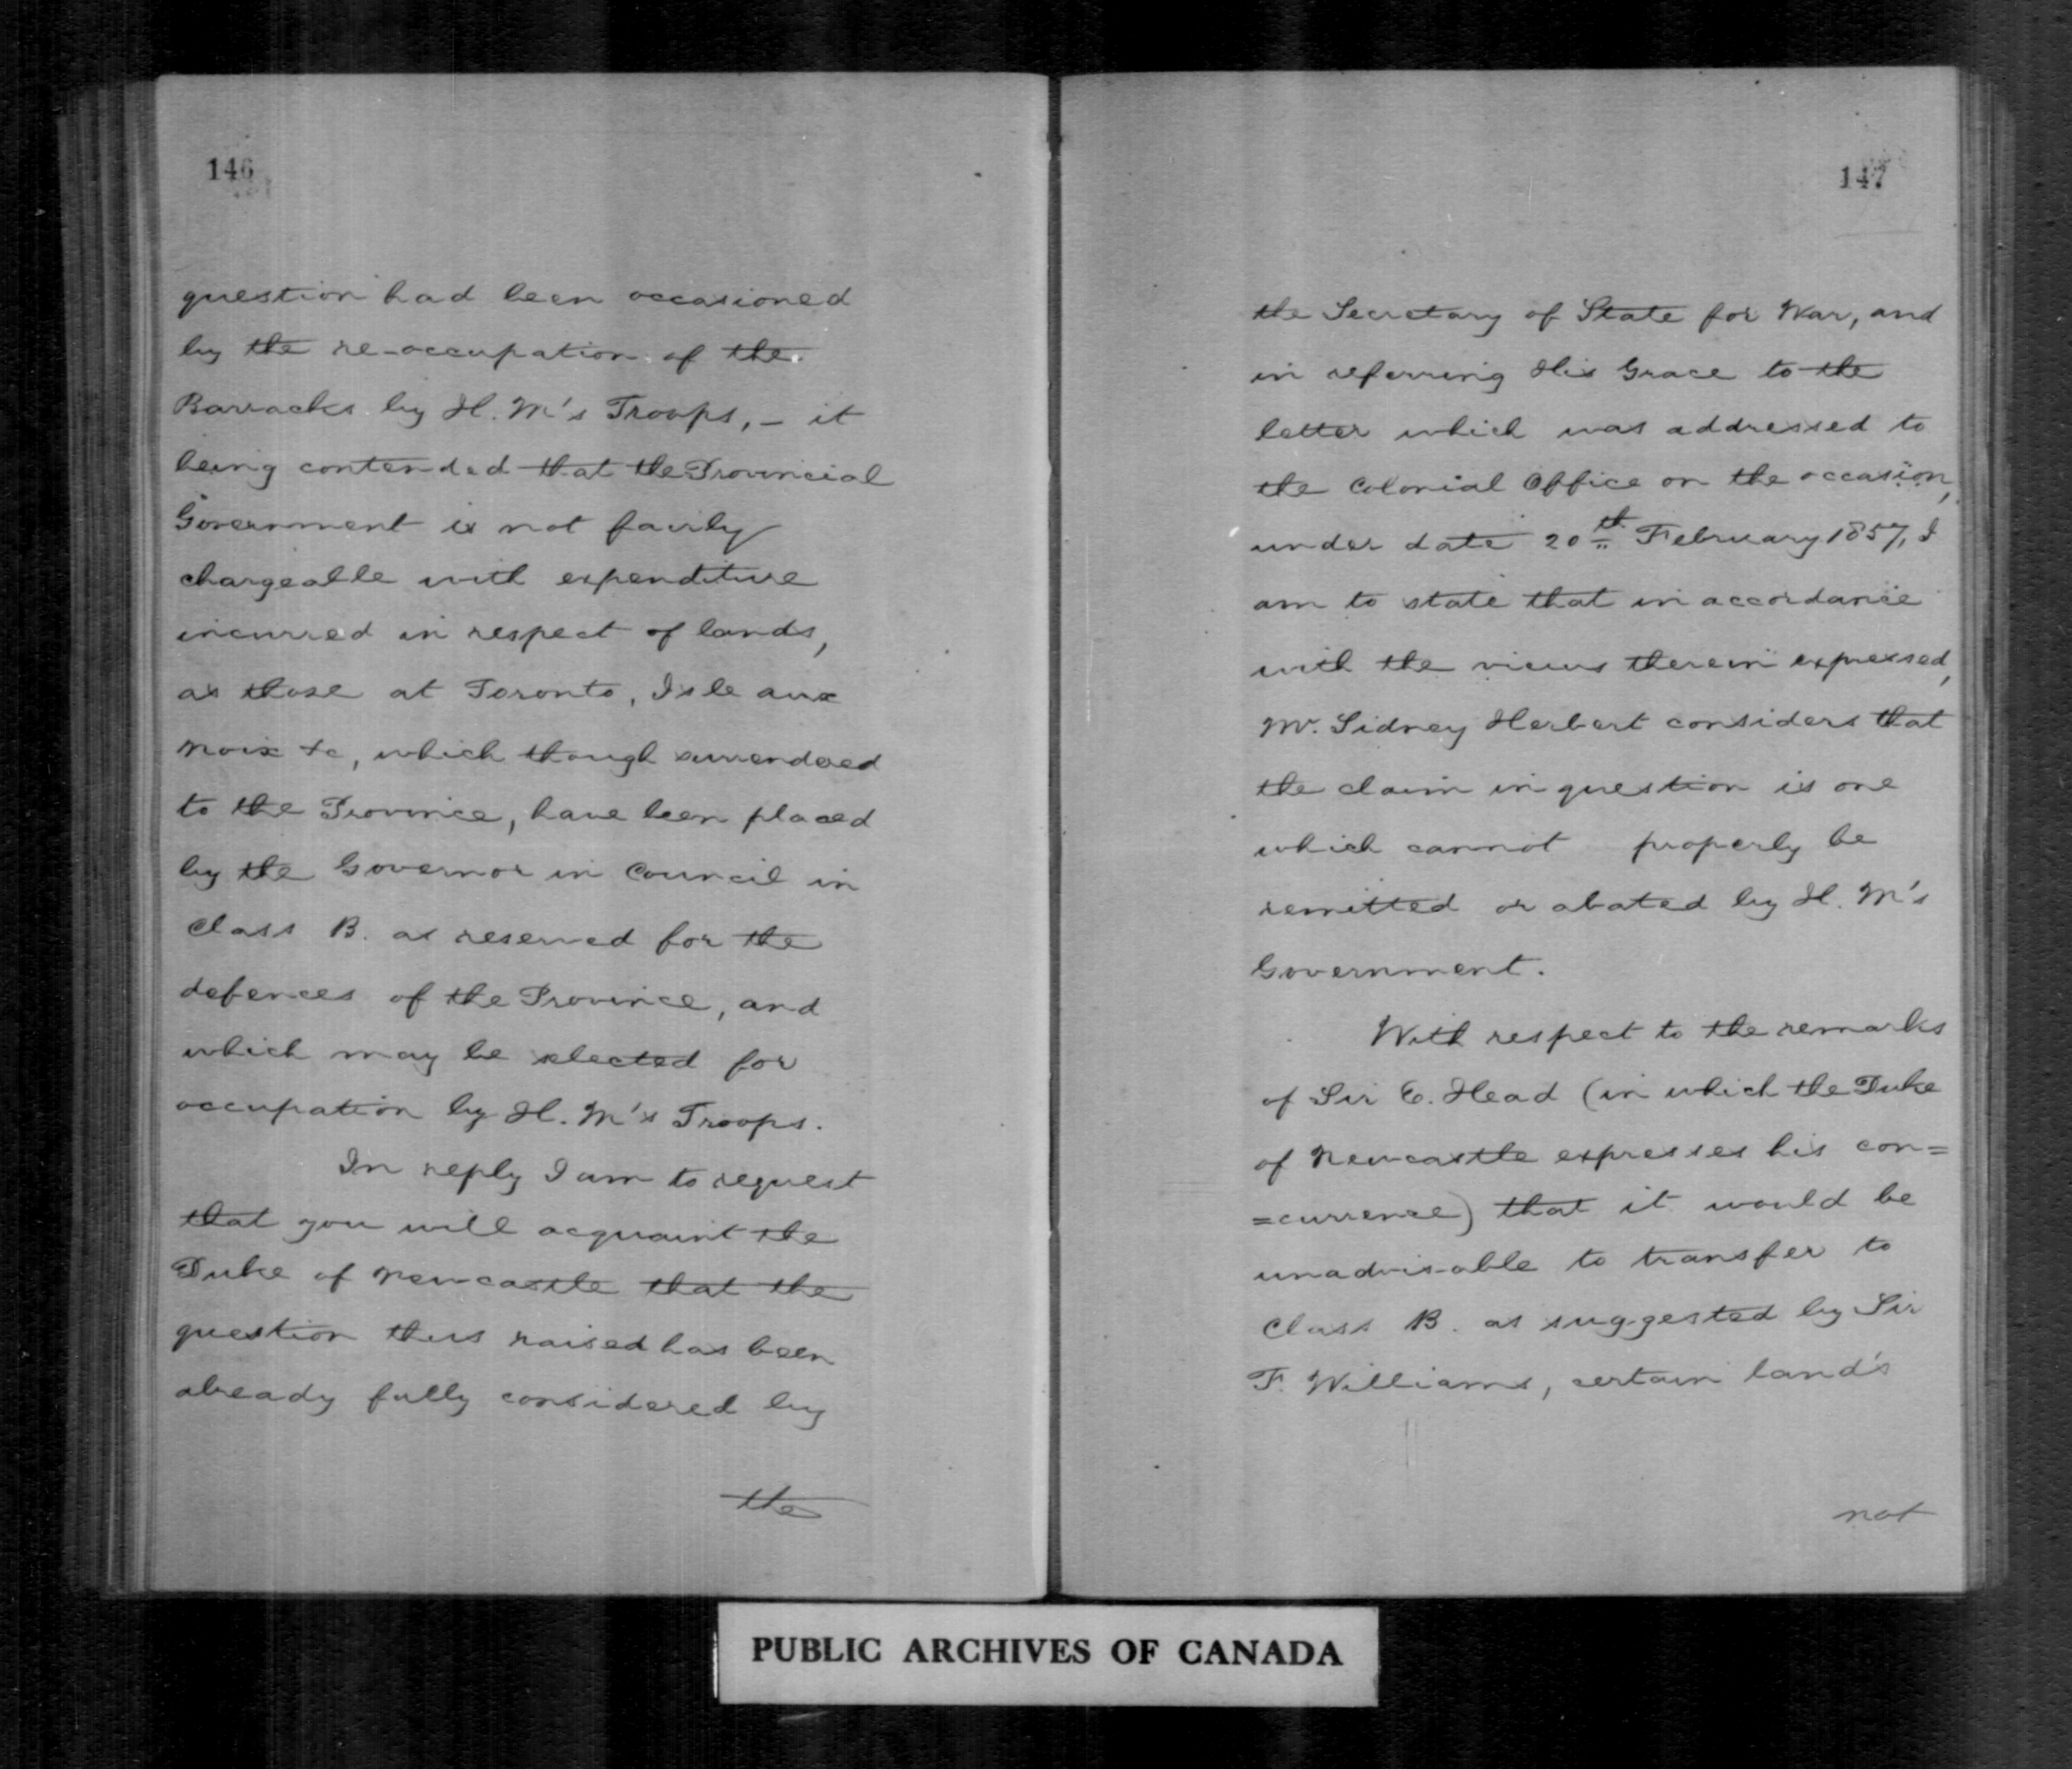 146
question had been occasioned
by the re-occupation of the
Barracks by H. M's Troops, – it
being contended that the Provincial
Government is not fairly
chargeable with expenditure
incurred in respect of lands,
as those at Toronto, Isle aux
Noix &c, which though surrendered
to the Province, have been placed
by the Governor in Council in
Class B. as reserved for the
defences of the Province, and
which may be selected for
occupation by H. M's Troops.
In reply I am to request
that you will acquaint the
Duke of Newcastle that the
question thus raised has been
already fully considered by
the
147
the Secretary of State for War, and
in referring His Grace to the
letter which was addressed to
the Colonial Office on the occasion,
under date 20th February 1857, I
am to state that in accordance
with the views therein expressed,
Mr. Sidney Herbert considers that
the claim in question is one
which cannot properly be
remitted or abated by H. M's
Government.
With respect to the remarks
of Sir E. Head (in which the Duke
of Newcastle expresses his con=
=currence) that it would be
unadvisable to transfer to
Class B. as suggested by Sir
F. Williams, certain lands
not
PUBLIC ARCHIVES OF CANADA